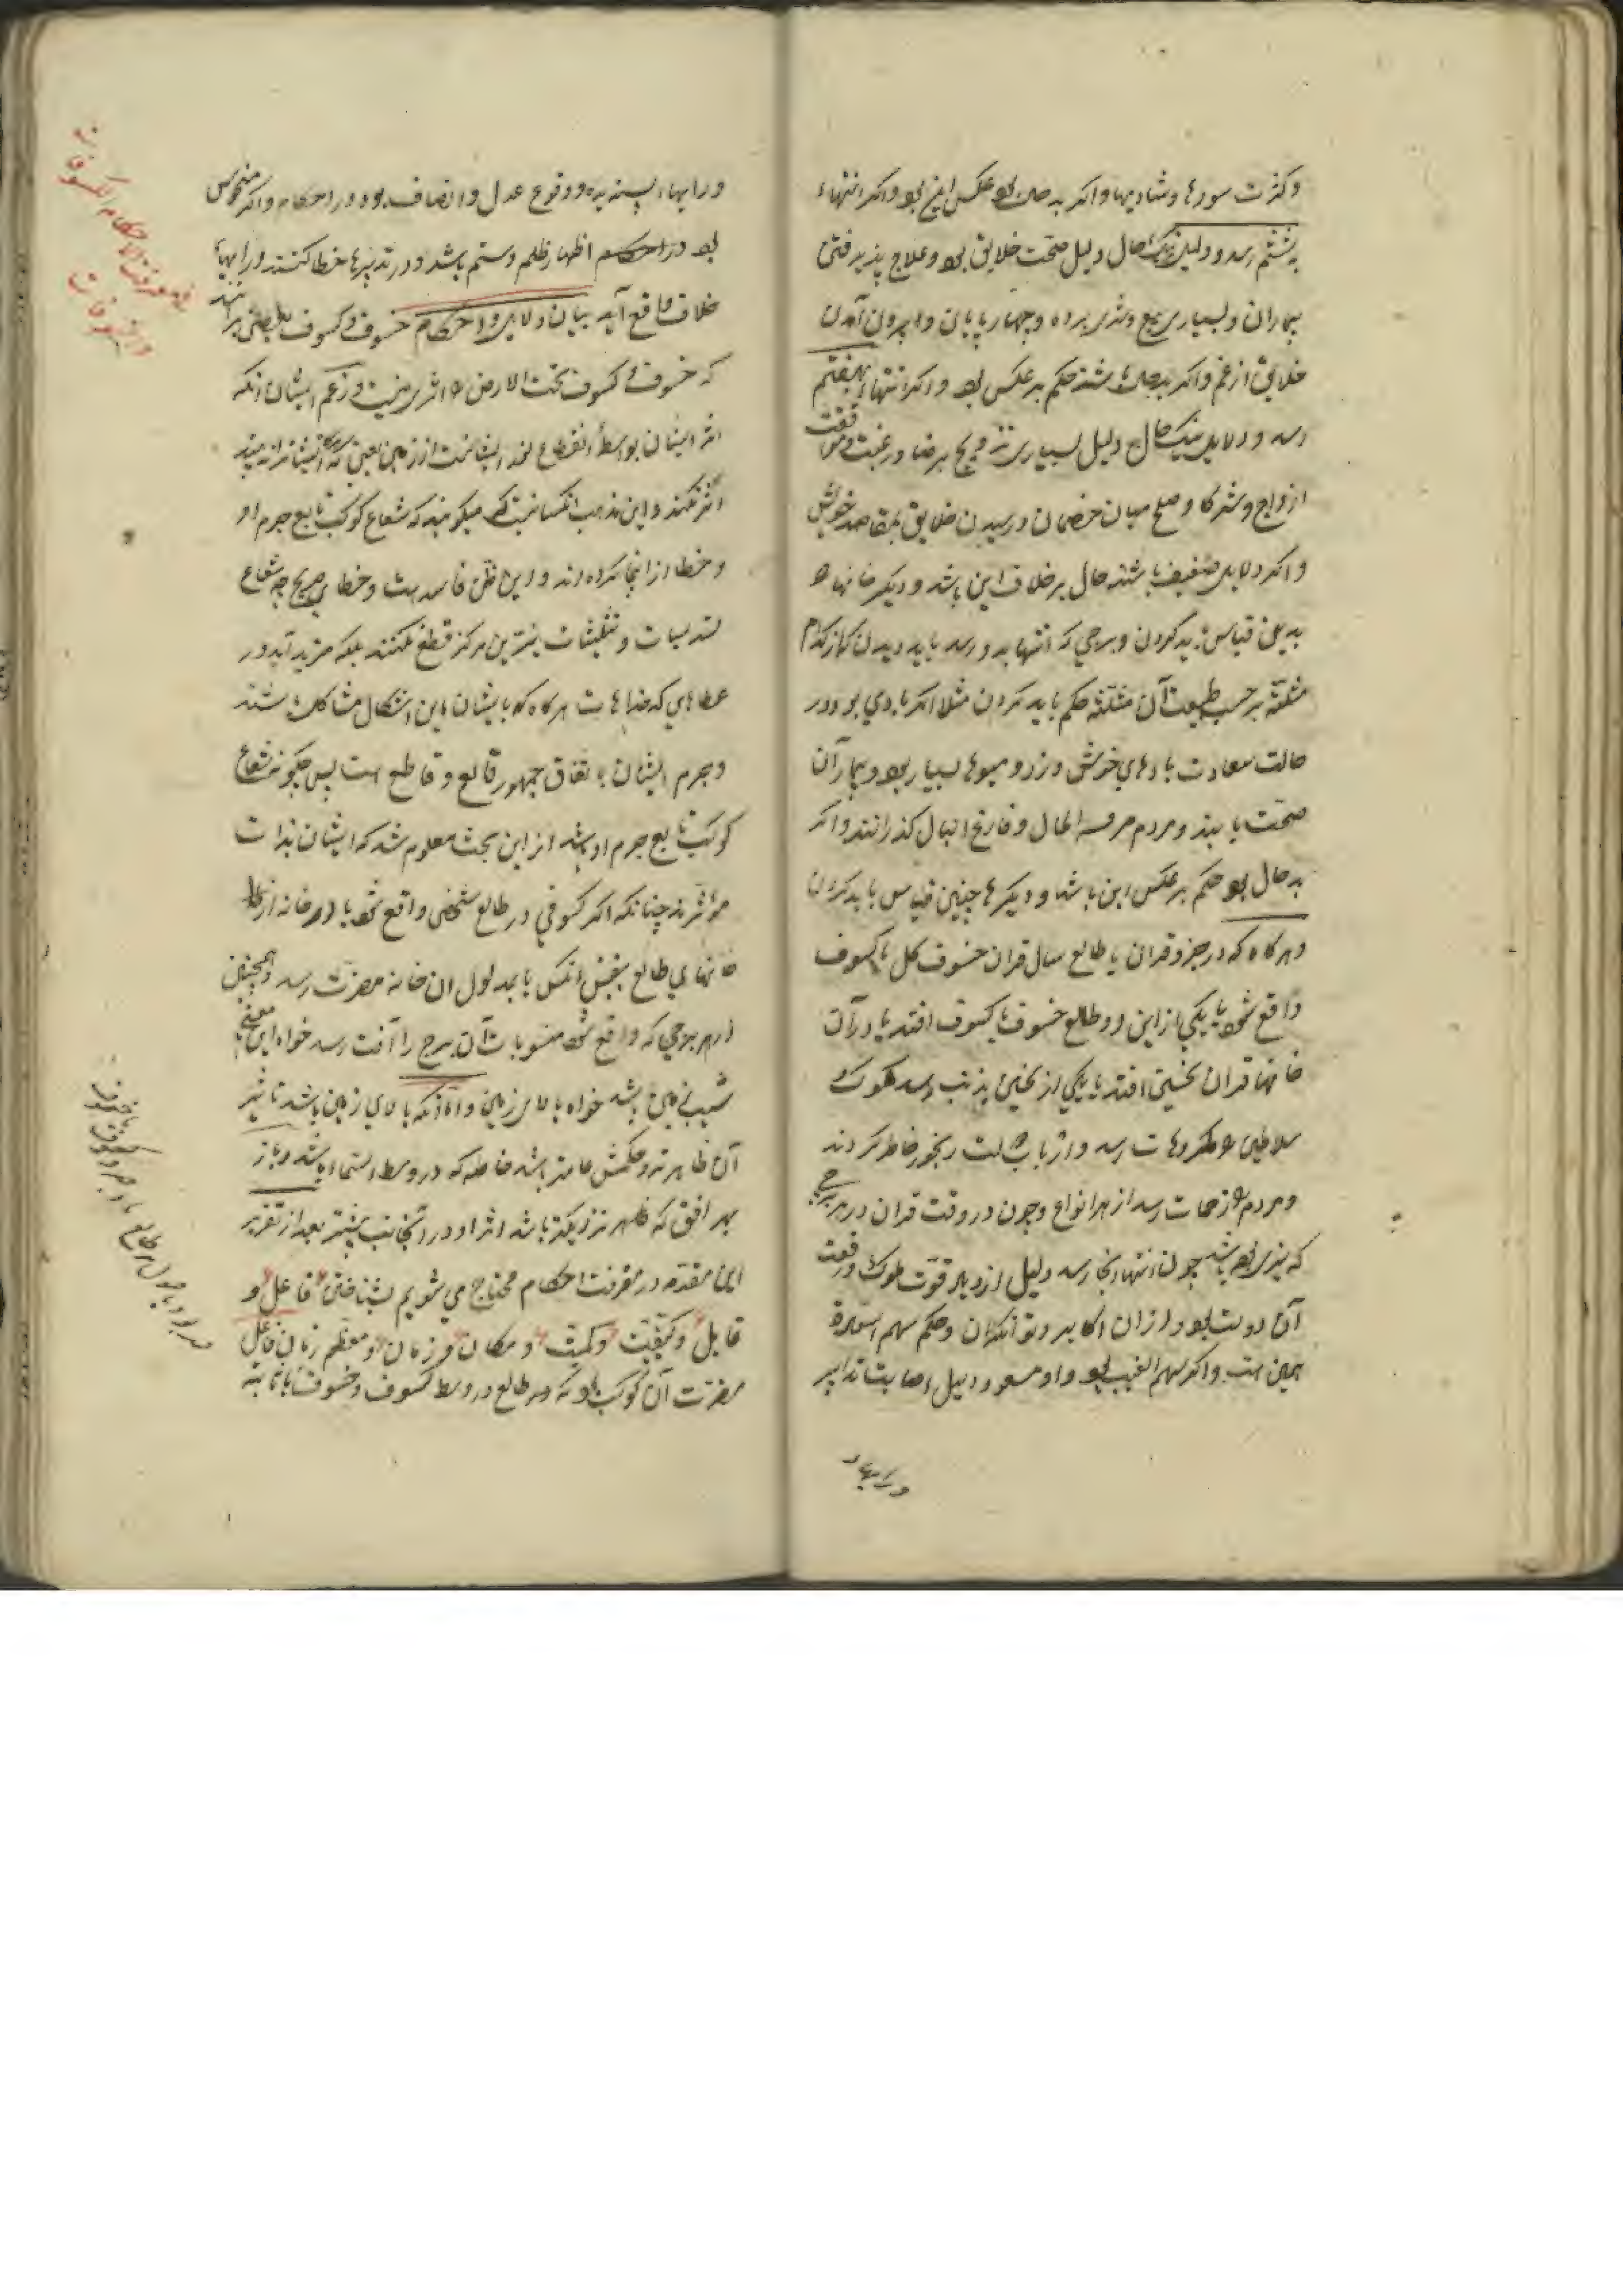 و کثرت سورها و شادیها و اکر بد حال بود عکس این بود و اکر انتهاء
بششم رسد و دلیل نیک حال دلیل صحت خلایق بود و علاج پذیرفتن
بیماران و بسیاری بیع و شری برده و چهارپایان و بیرون آمدن
خلایق از غم و اکر بد حال باشند حکم بر عکس بود و اکر انتهاء بهفتم
رسد و دلایل نیک حال دلیل بسیاری تزویج بر رضا و رغبت و موافقت
ازواج و شرکا و صلح میان خصمان و رسیدن خلایق بمقاصد خویش
و اکر دلایل ضعیف باشند حال بر خلاف این باشد و دیکر خانها
بدین قیاس باید کردن و برجی که انتها بدو رسد باید دیدن که از کدام
مثلثه بر حسب طبیعت آن مثلثه حکم باید کردن مثلا اکر بادی بود در
حالت سعادت بادهای خوش وزد و میوها بسیار بود و بیماران
صحت یابند و مردم مرفه الحال و فارغ البال کذرانند و اکر
بد حال بود حکم بر عکس این باشد و دیکرها چنین قیاس باید کردن
و هرکاه که در جزو قران یا طالع سال قران خسوف کل یا کسوف
واقع شود یا یکی از این دو طالع خسوف یا کسوف افتد یا در آن
خانها قران نحسین افتد یا یکی از نحسین بذنب رسد ملوک و
سلاطین را مکروهات رسد و ارباب دولت رنجور خاطر کردند
و مردم را زحمات رسد از هر انواع و چون در وقت قران در هر برجی
که نیری بوده باشد چون انتها انجا رسد دلیل ازدیاد قوت ملوک و رفعت
آن دولت بود و از ان اکابر و توانکران و حکم سهم السعادة
همین است و اکر سهم الغیب بود و او مسعود دلیل اصابت تدابیر
و رایهاء
و رایهاء پسندیده و وقوع عدل و انصاف بود در احکام و اکر منحوس
بود در احکام اظهار ظلم و ستم باشد و در تدبیرها خطا کنند و رایهاء
خلاف واقع آید بیان دلایل و احکام خسوف و کسوف بعضی بر آنند
که خسوف و کسوف تحت الارض را اثری نیست و زعم ایشان آنکه
اثر ایشان بواسطه انقطاع نور ایشانست از زمین یعنی
اثر نکند و این مذهب انکسانیست که میکویند که شعاع کوکب تابع جرم او
و خطا از اینجا کرده اند و این ظن فاسد است و خطای صریح چه شعاع
تسدیسات و تثلیثات نیرین مرکز قطع نکنند بلکه مزید آید در
عطاهای کدخداهات هرکاه که با ایشان باین اشکال مشاکل باشند
و جرم ایشان باتفاق جمهور قالع و قاطع است پس چکونه شعاع
کوکب تابع جرم او باشد از این بحث معلوم شد که ایشان بذات
مؤثرند چنانکه اکر کسوفی در طالع شخصی واقع شود یا در خانه از
خانهای طالع بنفس انکس یا بمدلول ان خانه مضرت رسد و همچنین
در هر برجی که واقع شود منسوبات آن برج را آفت رسد خواه این معنی
شیب زمین باشد خواه بالای زمین و اما آنکه بالای زمین باشد تاثیر
آن ظاهرتر و حکمش عامتر باشد خاصه که در وسط السماء باشد و باز
بهر افق که ظهر نزدیکتر باشد اثر او در آنجانب بیشتر بعد از تقریر
این مقدمه در معرفت احکام محتاج می شویم بشناختن فاعل و
قابل و کیفیت و کمیت و مکان و زمان و معظم زمان فاعل
مضرت آن کوکب بود که بر طالع و وسط کسوف و خسوف
فی معرفت احکام الکسوفات
و الخسوفات